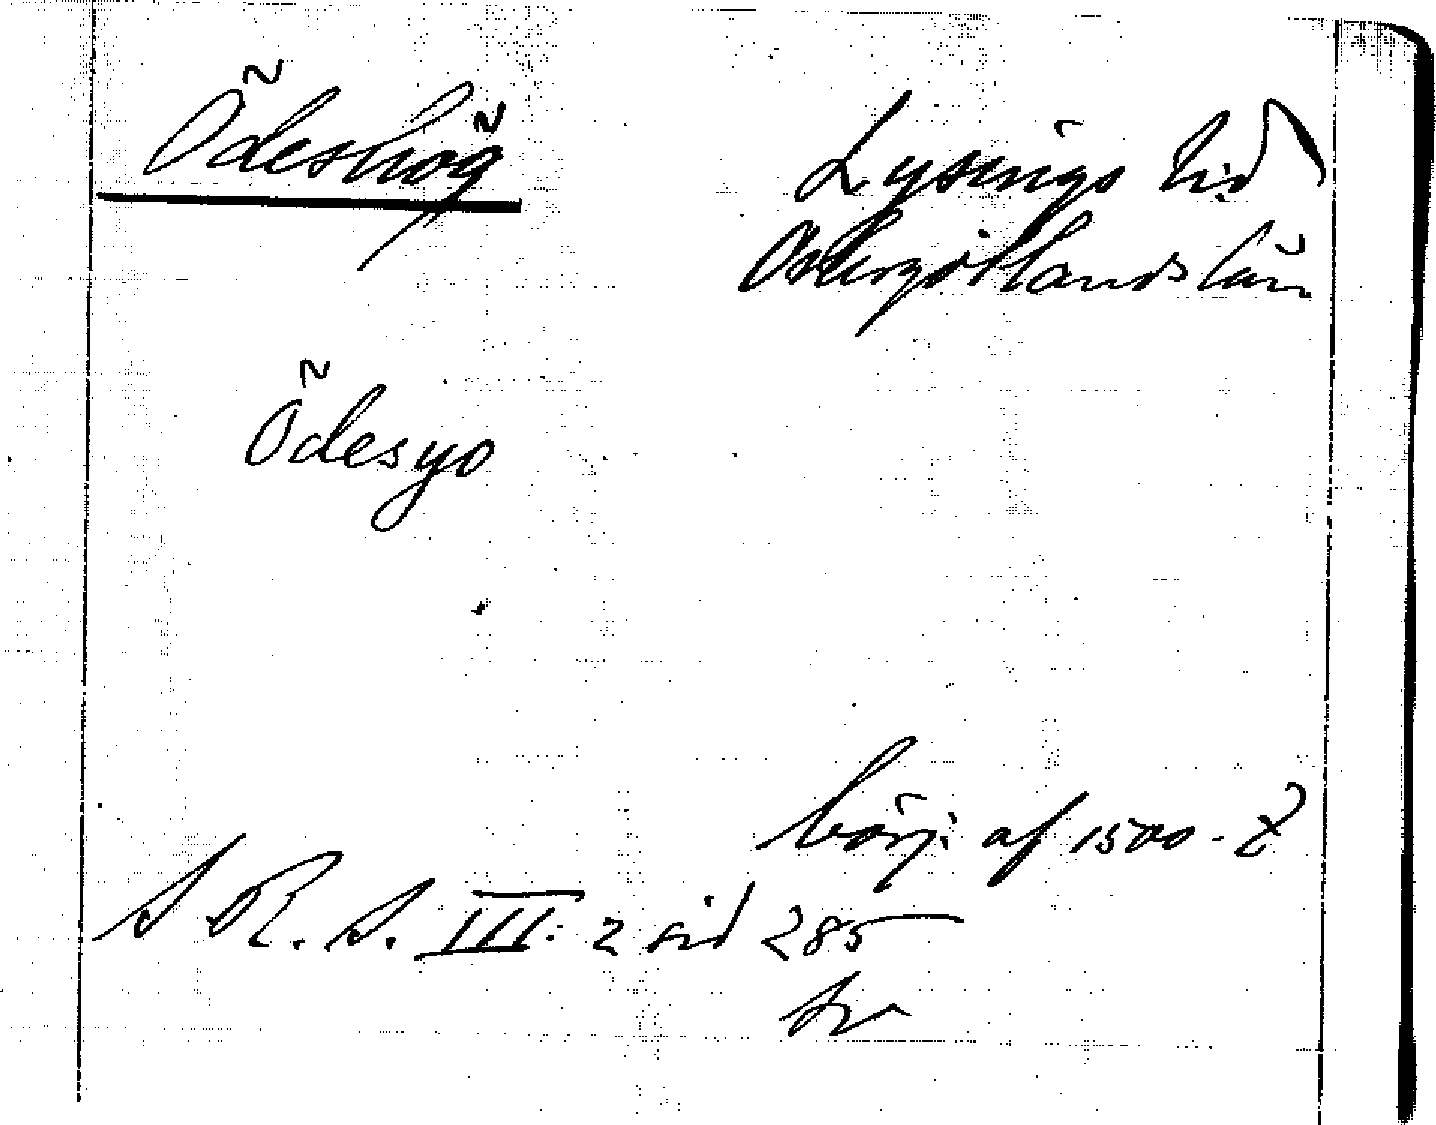 Ödeshög
Lysings hd
Östergötlands län
Ödesyo
börj. af 1500-t
S. R. S. III: 2 sid 285